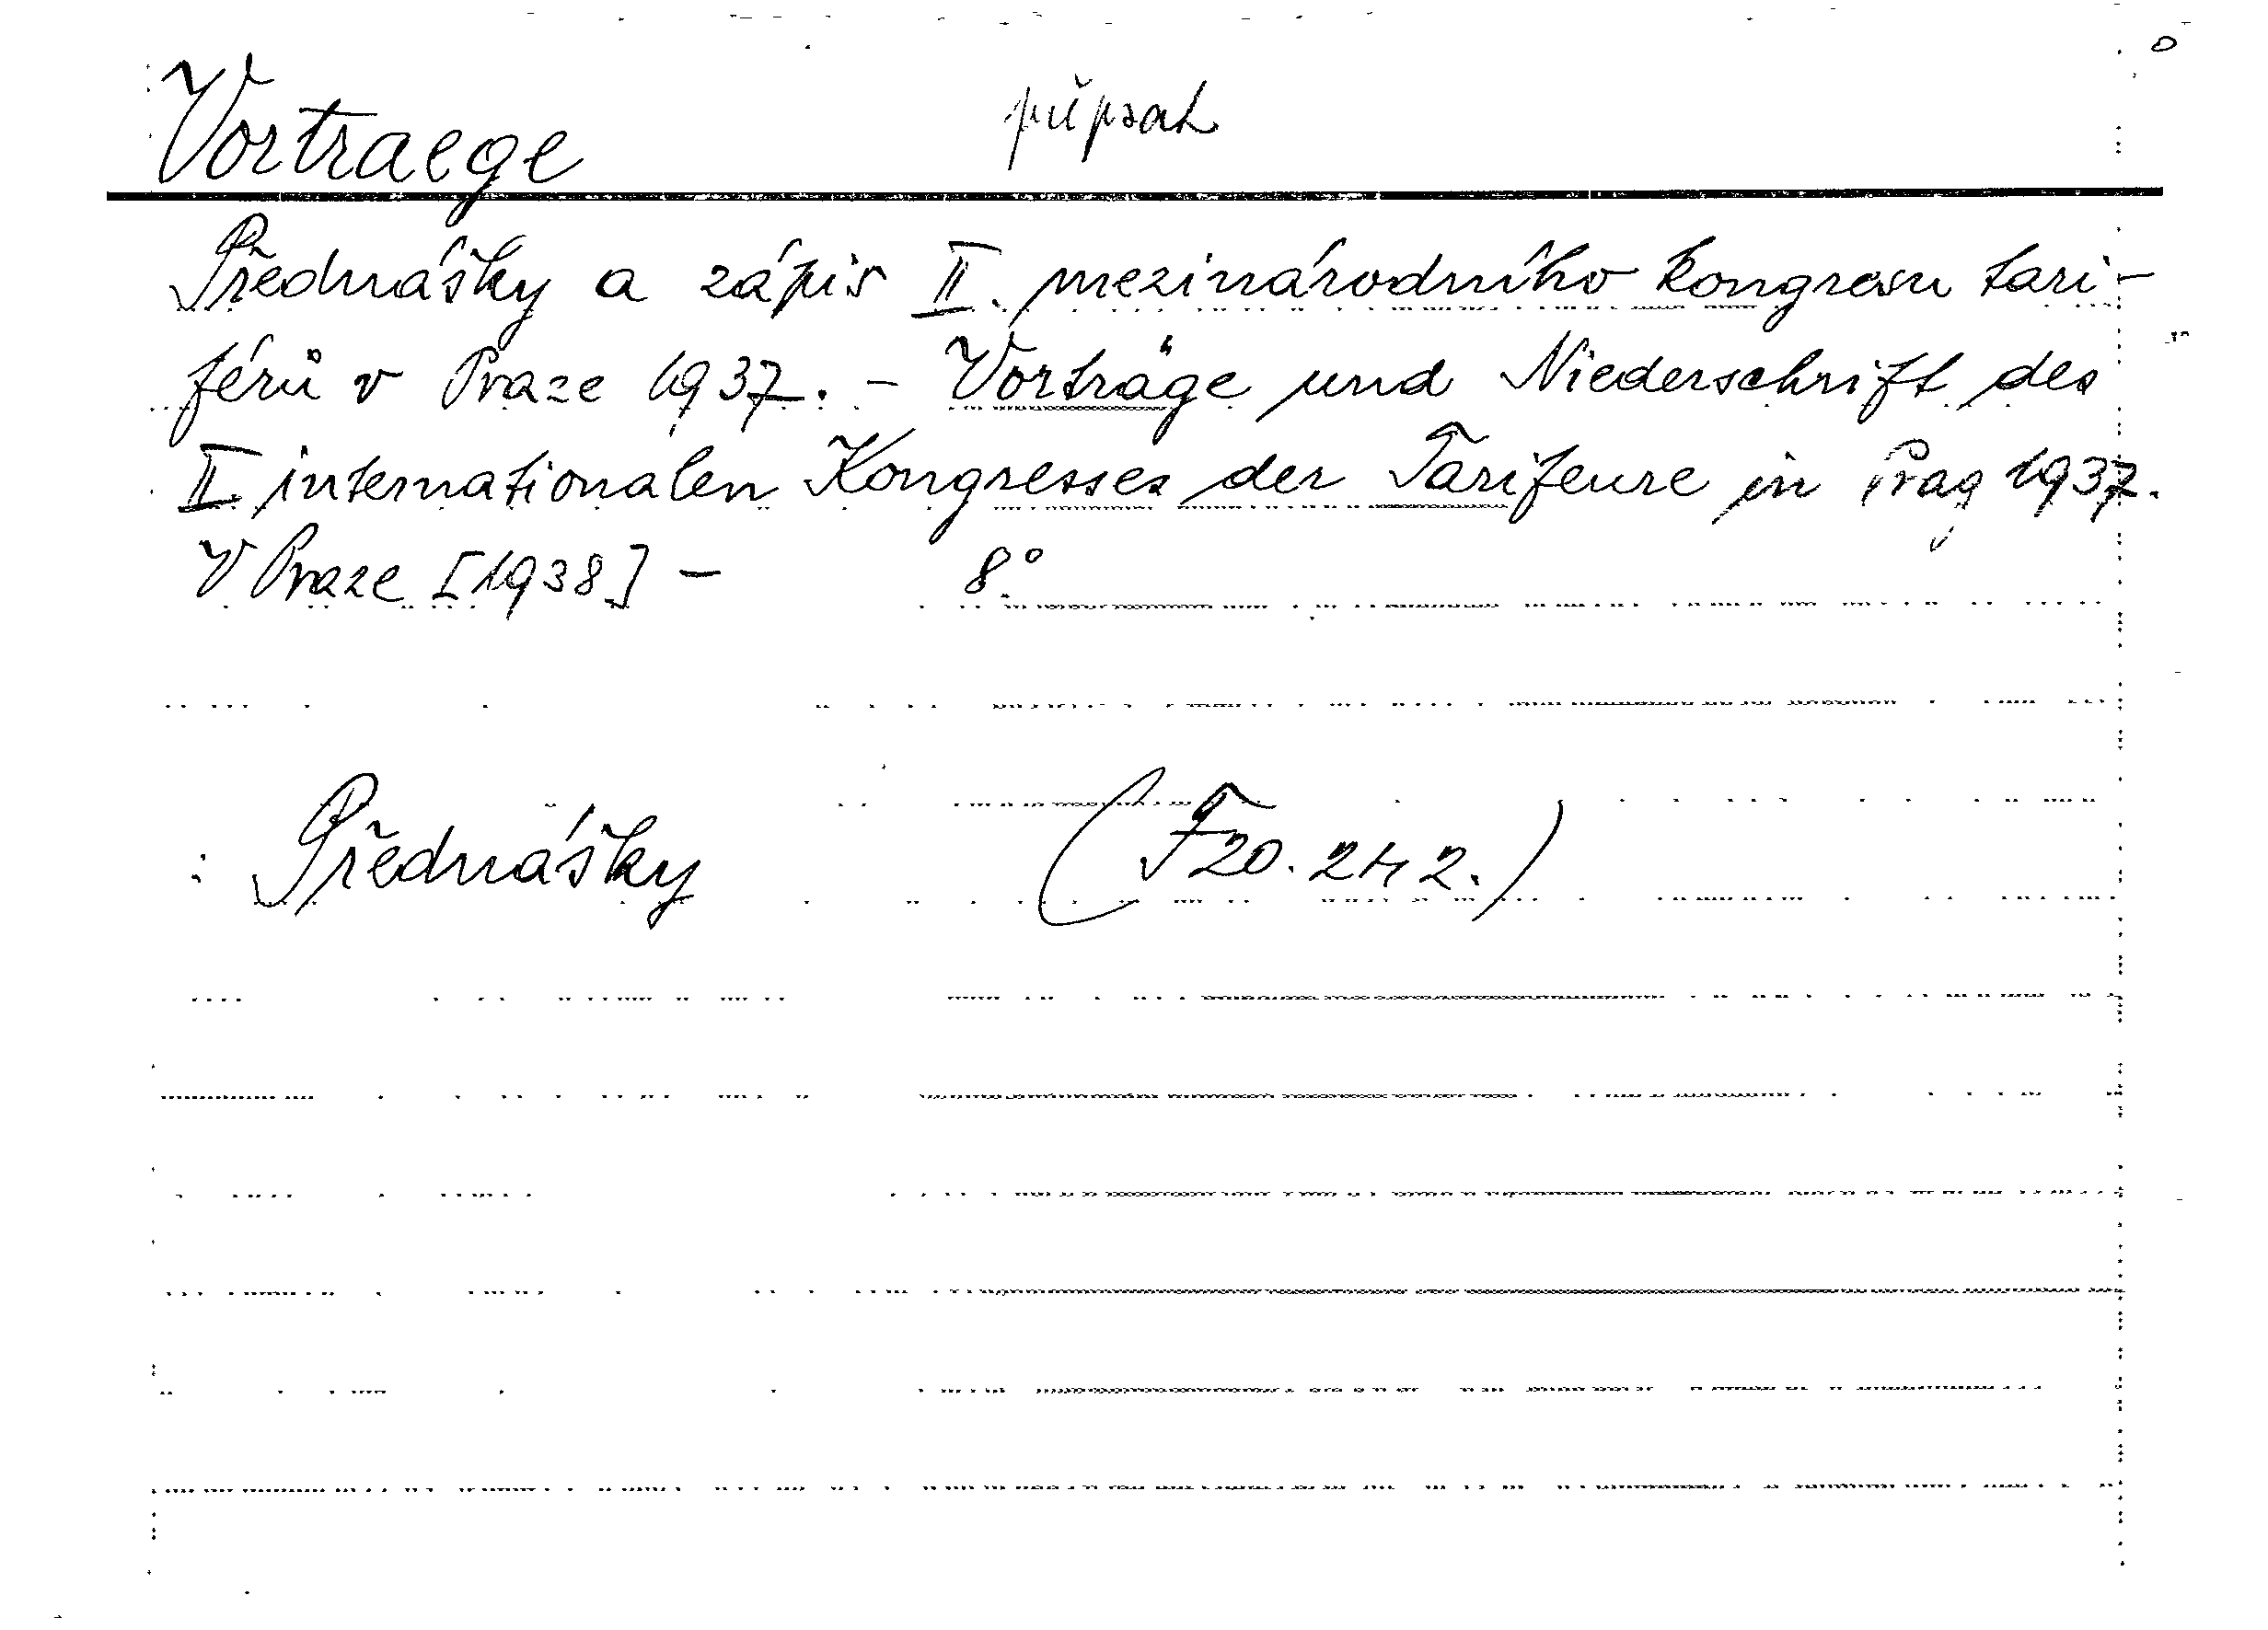 Vortraege připsat
Přednášky a zápis II. mezinárodního kongresu tari-
férů v Praze 1937. – Vorträge und Niederschrift des
II. internationalen Kongresses der Tarifeure in Prag 1937.
V Praze [1938] – 8°
: Přednášky (F 20.242.)